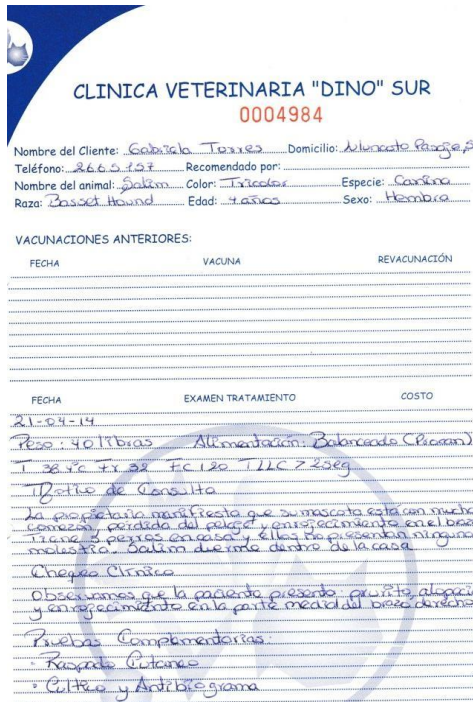 CLINICA VETERINARIA "DINO" SUR
0004984
Nombre del Cliente: Gabriela Torres Domicilio: Muncato Pasaje, S
Teléfono: 2665157 Recomendado por:
Nombre del animal: Salim Color: Tricolor Especie: Canina
Raza: Basset Hound Edad: 4 años Sexo: Hembra
VACUNACIONES ANTERIORES:
FECHA VACUNA REVACUNACIÓN
FECHA EXAMEN TRATAMIENTO COSTO
21-04-14
Peso: 40 libras Alimentación: Balanceado (Procan)
T 38.4°c Fr 32 FC 120 TLLC > 2seg
Motivo de Consulta
La propietaria manifiesta que su mascota esta con mucha
comezon, perdida del pelaje y enrojecimiento en el braz
Tiene 3 perros en casa y ellos no presentan ninguna
molestia. Salim duerme dentro de la casa
Chequeo Clinico
Observamos que la paciente presenta: prurito, alopecia
y enrojecimiento en la parte medial del brazo derecho
Pruebas Complementarias:
• Raspado Cutaneo
• Cultivo y Antibiograma